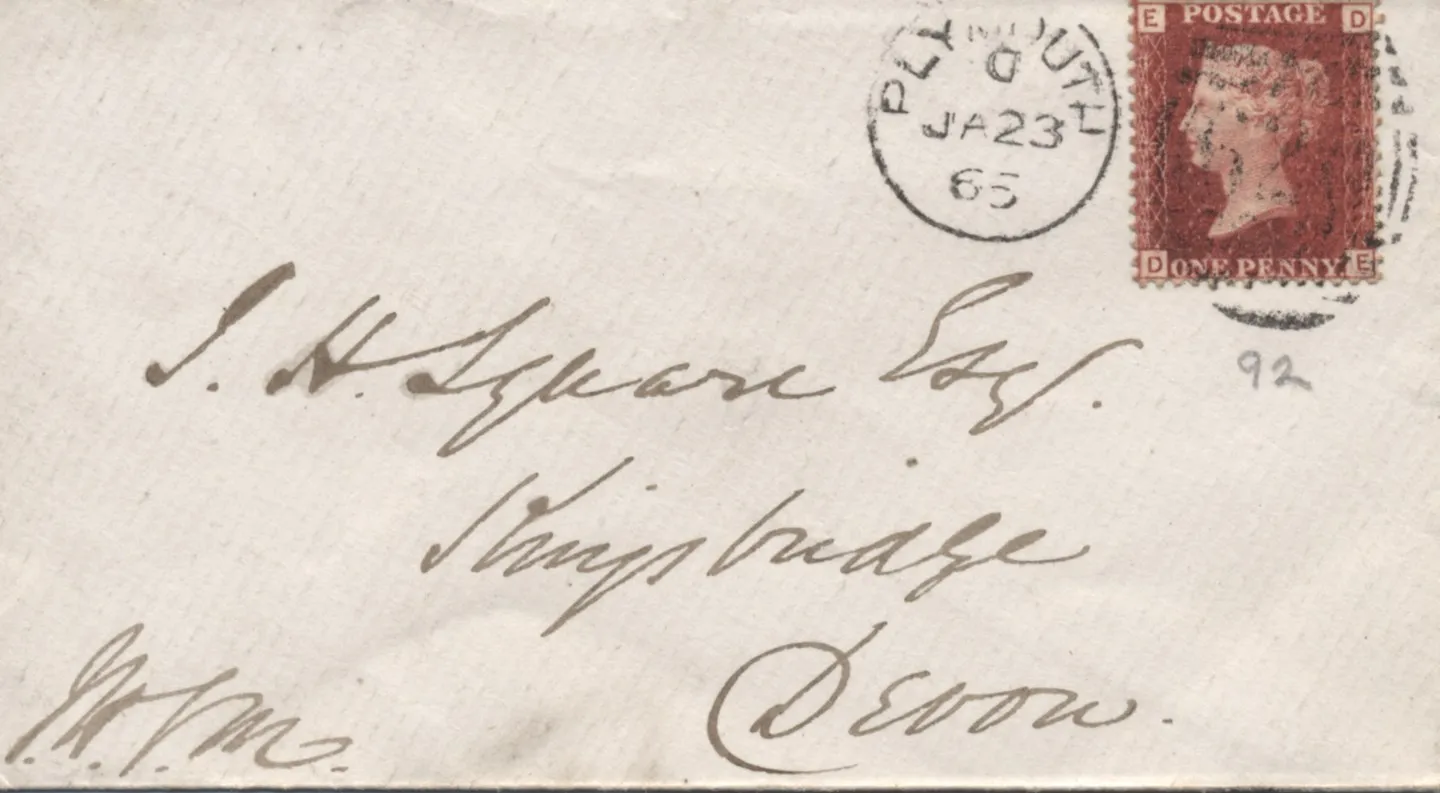 PLYMOUTH
D
JA23
65
E POSTAGE D
D ONE PENNY E
92
J. H. Square Esq.
Kingsbridge
Devon.